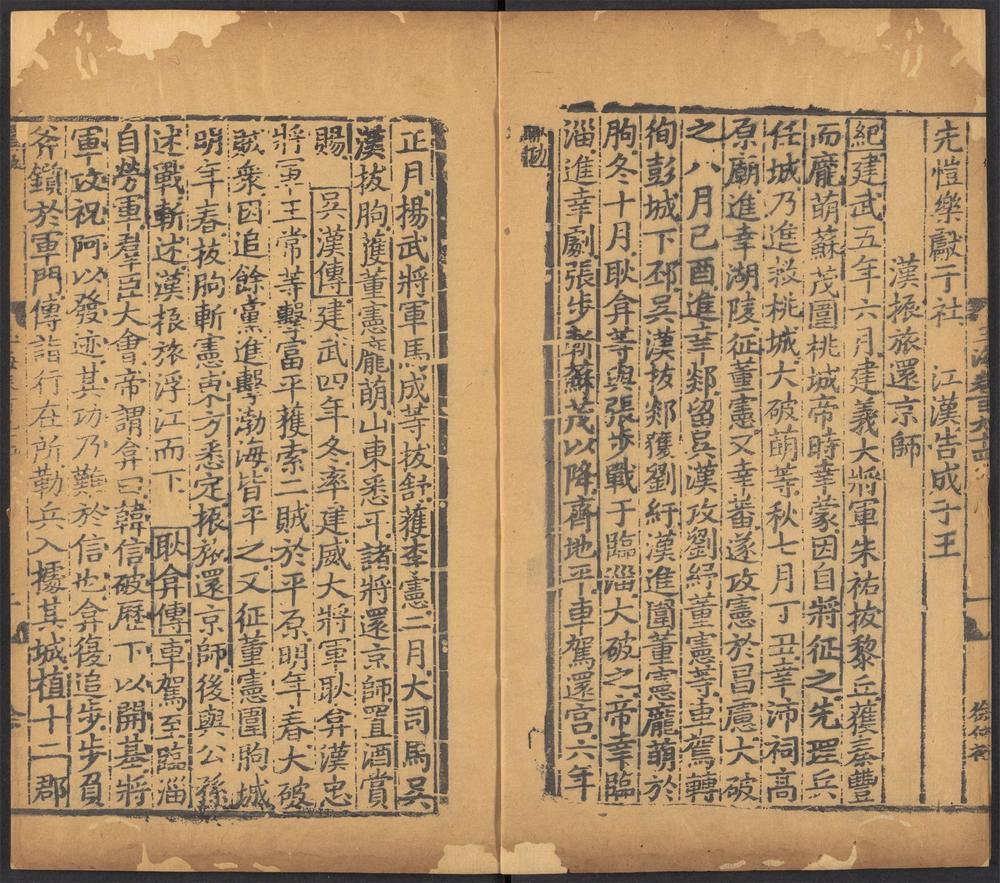 先愷樂獻于社　江漢告成于王
漢振旅還京師
紀建武五年六月建義大將軍朱祐拔黎丘獲秦豐
而龐萌蘇茂圍桃城帝時幸蒙因自將征之先理兵
任城乃進救桃城大破萌等秋七月丁丑幸沛祠高
原廟進幸湖陵征董憲又幸蕃遂攻憲於昌慮大破
之八月己酉進幸郯留吳漢攻劉紆董憲等車駕轉
徇彭城下邳吳漢拔郯獲劉紆漢進圍董憲龐萌於
朐冬十月耿弇等與張步戰于臨淄大破之帝幸臨
淄進幸劇張步斬蘇茂以降齊地平車駕還宫六年
正月揚武將軍馬成等拔舒獲李憲二月大司馬吳
漢拔朐獲董憲龐萌山東悉平諸將還京師置酒賞
賜　吳漢傳建武四年冬率建威大將軍耿弇漢忠
將軍王常等擊富平獲索二賊於平原明年春大破
賊衆因追餘黨進擊勃海皆平之又征董憲圍朐城
明年春拔朐斬憲東方悉定振旅還京師後與公孫
述戰斬述漢振旅浮江而下　耿弇傳車駕至臨淄
自勞軍羣臣大會帝謂弇曰韓信破歷下以開基將
軍攻祝阿以發迹其功乃難於信也弇復追步步負
斧鑕於軍門傳詣行在所勒兵入據其城植十二郡